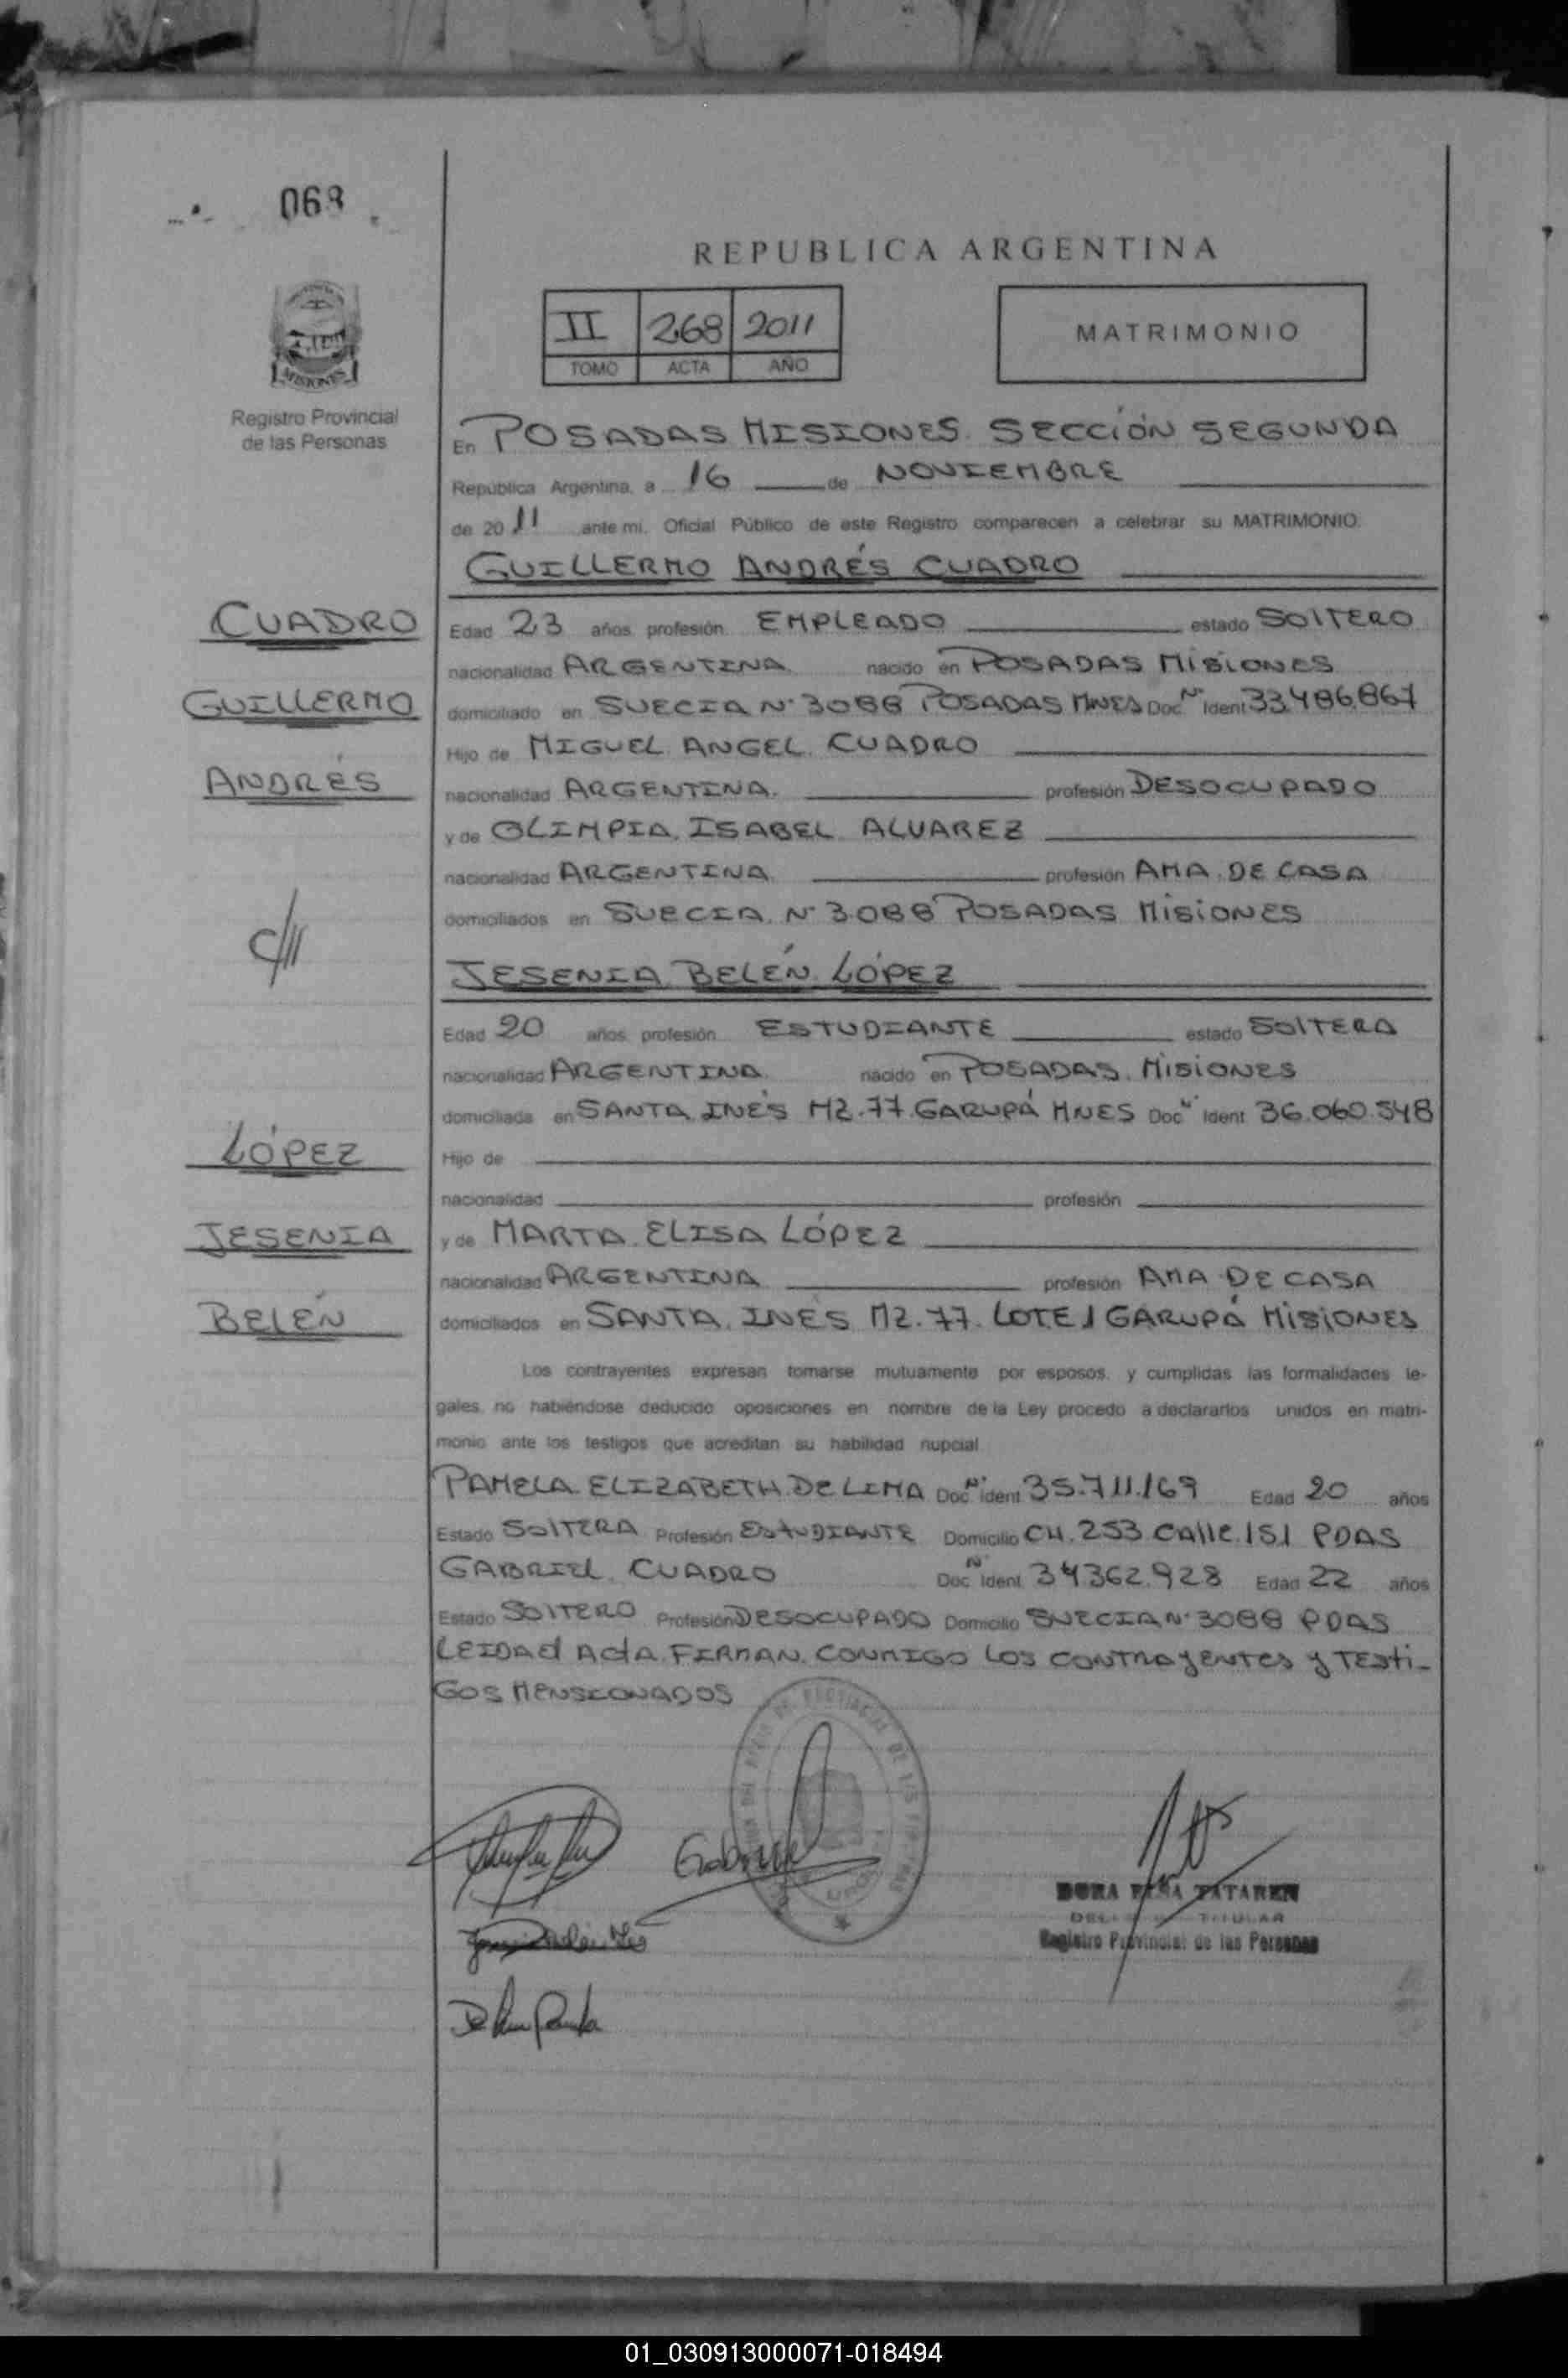 068
REPUBLICA ARGENTINA
II 268 2011
TOMO ACTA AÑO
MATRIMONIO
MISIONES
Registro Provincial
de las Personas
En POSADAS MISIONES. SECCIÓN SEGUNDA
República Argentina, a 16 de NOVIEMBRE
de 2011 ante mi, Oficial Público de este Registro comparecen a celebrar su MATRIMONIO.
GUILLERMO ANDRÉS CUADRO
CUADRO
GUILLERMO
ANDRÉS
Edad 23 años profesión EMPLEADO estado SOLTERO
nacionalidad ARGENTINA. nacido en POSADAS MISIONES
domiciliado en SUECIA Nº 3088 POSADAS MNES Doc. Nº Ident 33.486.867
Hijo de MIGUEL ANGEL CUADRO
nacionalidad ARGENTINA. profesión DESOCUPADO
y de OLIMPIA ISABEL ALVAREZ
nacionalidad ARGENTINA profesión AMA DE CASA
domiciliados en SUECIA Nº 3088 POSADAS MISIONES
JESENIA BELÉN LÓPEZ
Edad 20 años profesión ESTUDIANTE estado SOLTERA
nacionalidad ARGENTINA. nacido en POSADAS. MISIONES
domiciliada en SANTA INÉS MZ.77 GARUPÁ MNES Doc Nº Ident 36.060.548
LÓPEZ
JESENIA
BELÉN
Hijo de
nacionalidad profesión
y de MARTA ELISA LÓPEZ
nacionalidad ARGENTINA profesión AMA DE CASA
domiciliados en SANTA INÉS MZ.77 LOTE 1 GARUPÁ MISIONES
Los contrayentes expresan tomarse mutuamente por esposos, y cumplidas las formalidades le-
gales, no habiéndose deducido oposiciones en nombre de la Ley procedo a declararlos unidos en matri-
monio ante los testigos que acreditan su habilidad nupcial
PAMELA ELIZABETH DE LIMA Doc Nº ident 35.711.169 Edad 20 años
Estado SOLTERA Profesión ESTUDIANTE Domicilio CH. 253 CALLE 151 PDAS
GABRIEL CUADRO Doc Nº Ident 34362.928 Edad 22 años
Estado SOLTERO Profesión DESOCUPADO Domicilio SUECIA Nº 3088 PDAS
LEIDA EL ACTA FIRMAN CONMIGO LOS CONTRAYENTES Y TESTI-
GOS MENSIONADOS
Gabriel
DORA TATAREN
TITULAR
Registro Provincial de las Personas
01_030913000071-018494